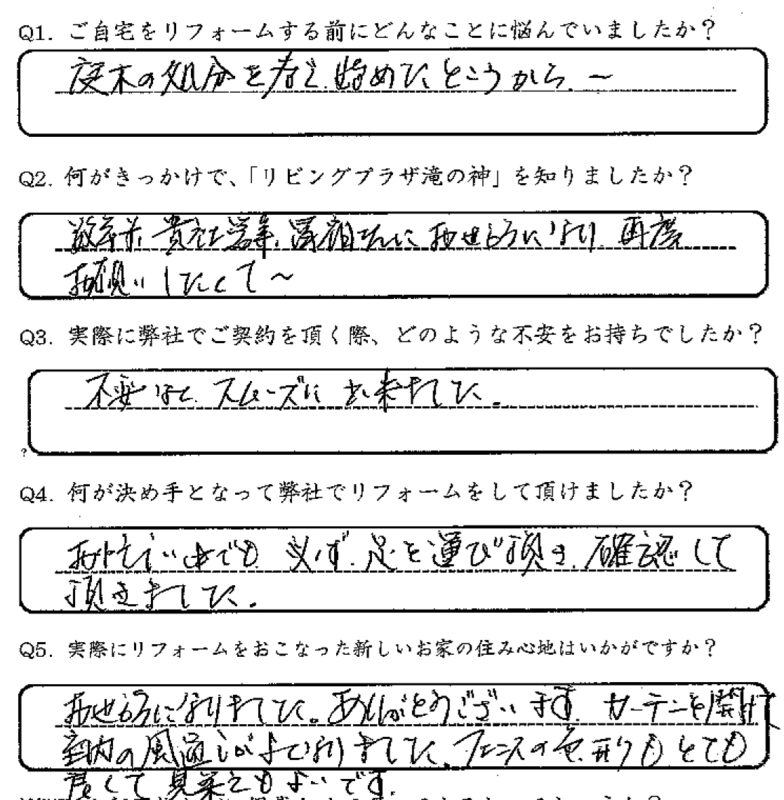 Q1. ご自宅をリフォームする前にどんなことに悩んでいましたか？
庭木の処分を考え始めたところから ～
Q2. 何がきっかけで、「リビングプラザ滝の神」を知りましたか？
数年前、貴社営業 さんにお世話になり 再度
お願いしたくて～
Q3. 実際に弊社でご契約を頂く際、どのような不安をお持ちでしたか？
不安なく、スムーズに出来ました。
?
Q4. 何が決め手となって弊社でリフォームをして頂けましたか？
お忙しい中でも 必ず 足を運び頂き、確認して
頂きました。
Q5. 実際にリフォームをおこなった新しいお家の住み心地はいかがですか？
お世話になりました。ありがとうございます。カーテンを開けて
室内の風通しがよくなりました。フェンスの色、形もとても
良くて見栄えもよいです。